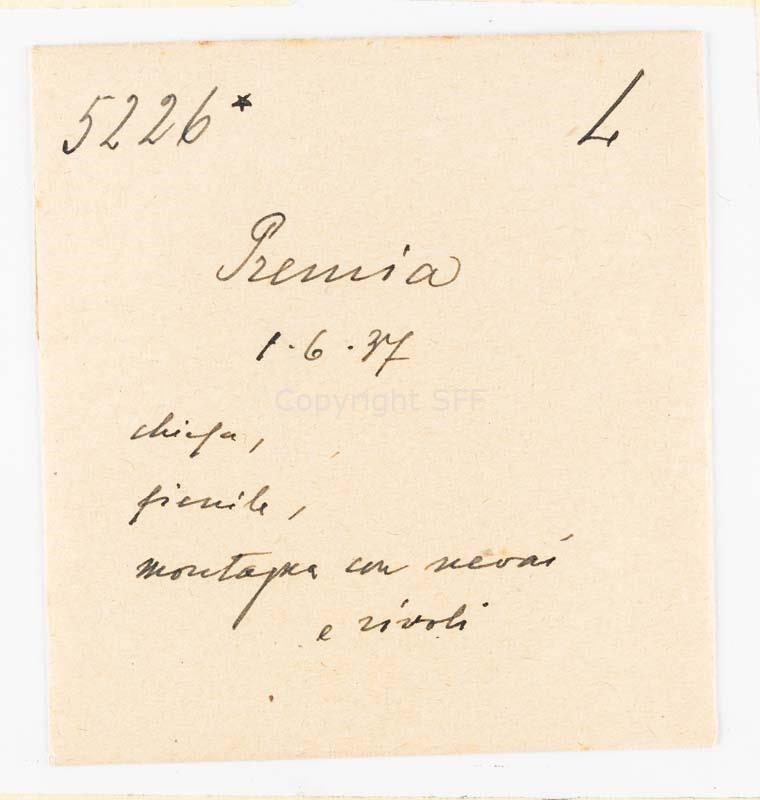 5226* L
Premia
1.6.37
Copyright SFF
chiesa,
fienile,
montagna con nevai
e rivoli